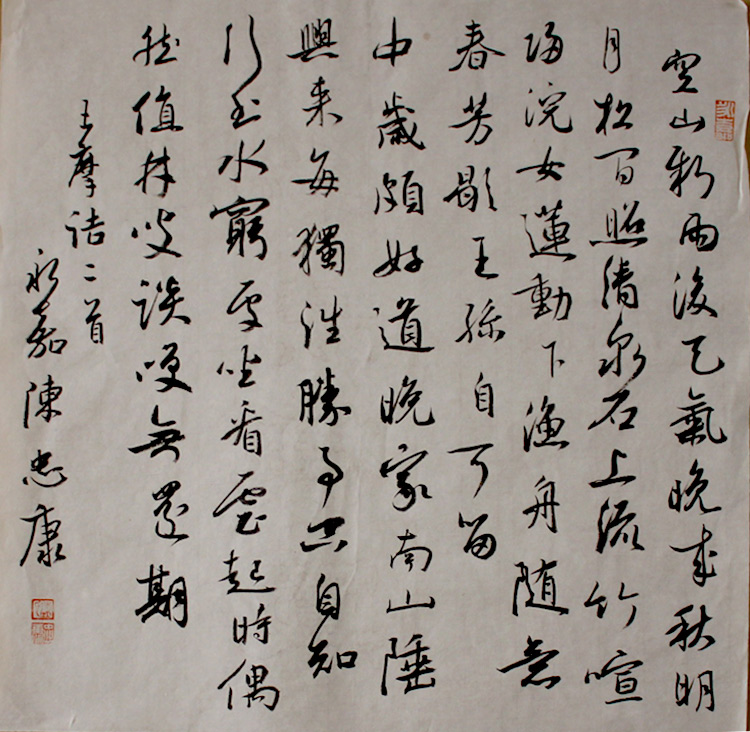 空山新雨後天氣晚来秋明
月松間照清泉石上流竹喧
歸浣女蓮動下漁舟随意
春芳歇王孫自可留
中歲頗好道晚家南山陲
興来每獨往勝事空自知
行到水窮處坐看雲起時偶
然值林叟談咲無還期
王摩詰二首
永嘉陳忠康